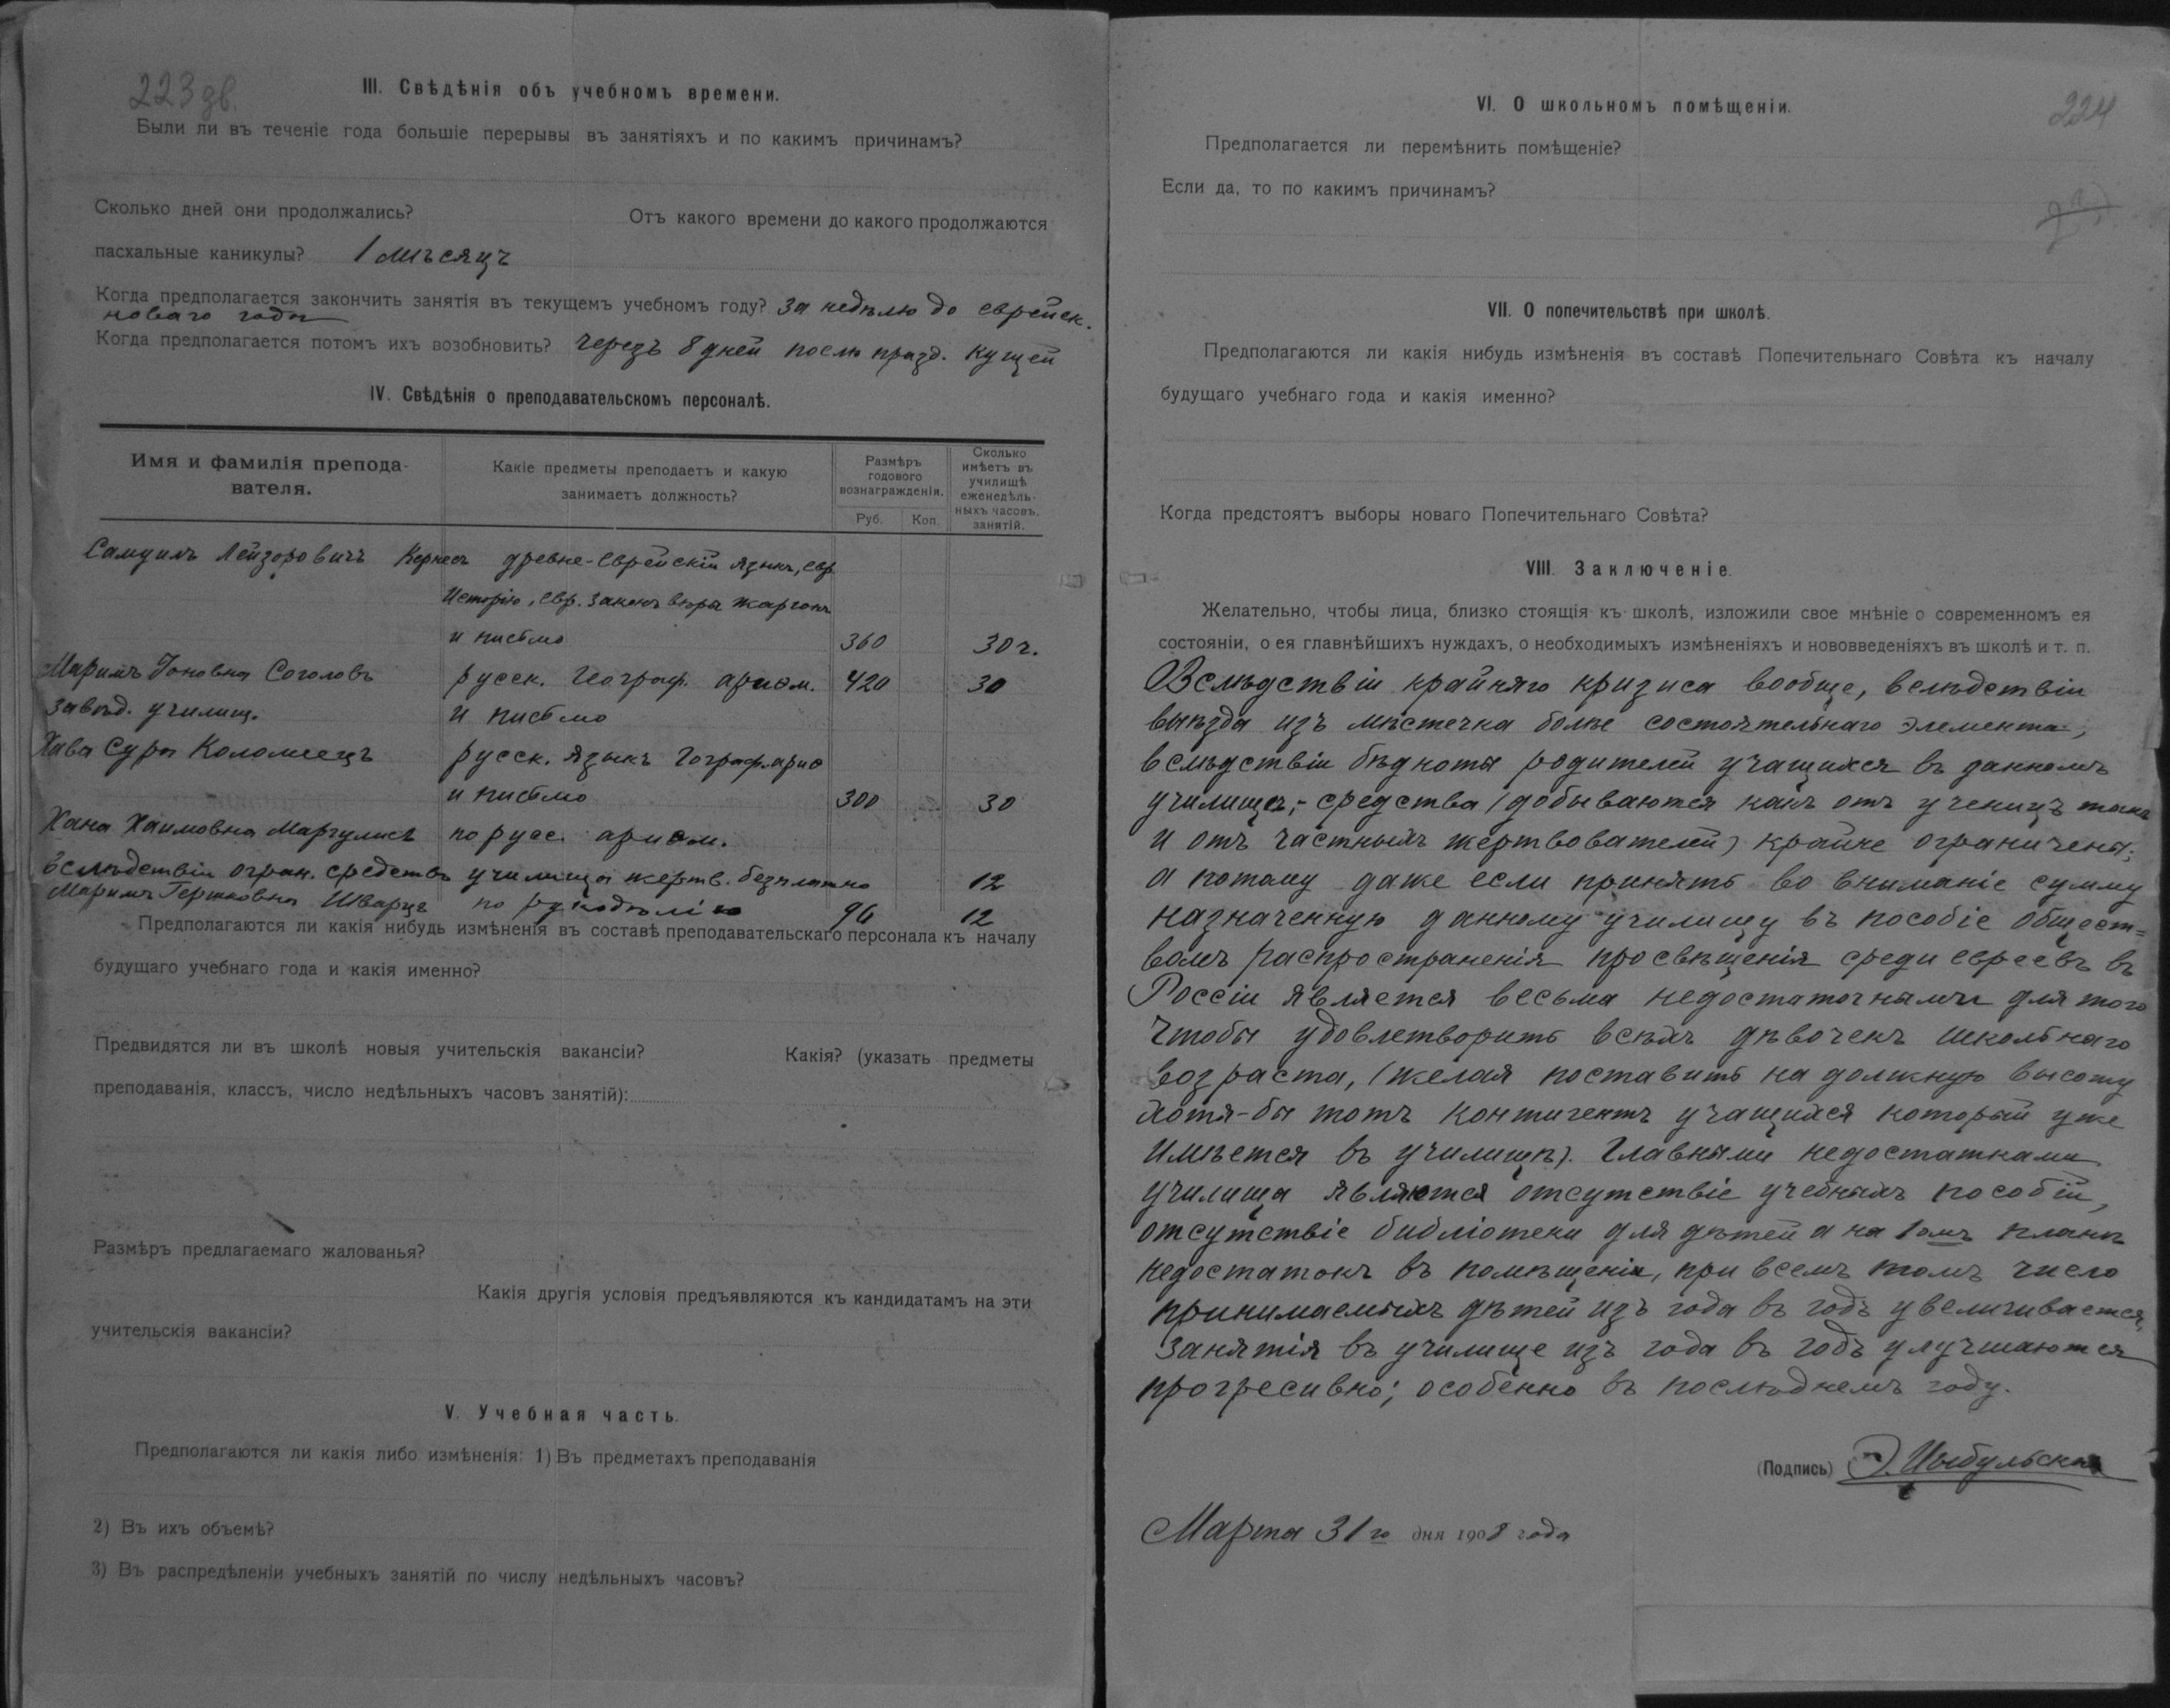 223 зв.
III. Свѣдѣнія объ учебномъ времени.
Были ли въ теченіе года большіе перерывы въ занятіяхъ и по какимъ причинамъ?
Сколько дней они продолжались? Отъ какого времени до какого продолжаются
пасхальные каникулы? 1 мѣсяцъ
Когда предполагается закончить занятія въ текущемъ учебномъ году? за недѣлю до еврейск.
новаго года
Когда предполагается потомъ ихъ возобновить? черезъ 8 дней послѣ празд. Кущей
IV. Свѣдѣнія о преподавательскомъ персоналѣ.
Имя и фамилія препода-
вателя.
Какіе предметы преподаетъ и какую
занимаетъ должность?
Размѣръ
годового
вознагражденія.
Руб. Коп.
Сколько
имѣетъ въ
училищѣ
еженедѣль-
ныхъ часовъ.
занятій.
Самуилъ Лейзоровичъ Кернесъ древне-Еврейскій языкъ, евр.
Исторію, евр. законъ вѣры жаргонъ
и письмо 360 30 ч.
Маримъ Іоновна Соголовъ русск. Географ. ариѳм. 420 30
завѣд. училищ. и письмо
Хава Сура Коломеецъ русск. языкъ Географ. ариѳ
и письмо 300 30
Хана Хаимовна Маргулисъ по русс. ариѳм.
вслѣдствіи огран. средствъ училища жертв. безплатно 12
Маримъ Гершковна Шварцъ по рукодѣлію 96 12
Предполагаются ли какія нибудь измѣненія въ составѣ преподавательскаго персонала къ началу
будущаго учебнаго года и какія именно?
Предвидятся ли въ школѣ новыя учительскія вакансіи? Какія? (указать предметы
преподаванія, классъ, число недѣльныхъ часовъ занятій):
Размѣръ предлагаемаго жалованья?
Какія другія условія предъявляются къ кандидатамъ на эти
учительскія вакансіи?
V. Учебная часть.
Предполагаются ли какія либо измѣненія: 1) Въ предметахъ преподаванія
2) Въ ихъ объемѣ?
3) Въ распредѣленіи учебныхъ занятій по числу недѣльныхъ часовъ?
224
VI. О школьномъ помѣщеніи.
Предполагается ли перемѣнить помѣщеніе?
Если да, то по какимъ причинамъ?
VII. О попечительствѣ при школѣ.
Предполагаются ли какія нибудь измѣненія въ составѣ Попечительнаго Совѣта къ началу
будущаго учебнаго года и какія именно?
Когда предстоятъ выборы новаго Попечительнаго Совѣта?
VIII. Заключеніе.
Желательно, чтобы лица, близко стоящія къ школѣ, изложили свое мнѣніе о современномъ ея
состояніи, о ея главнѣйшихъ нуждахъ, о необходимыхъ измѣненіяхъ и нововведеніяхъ въ школѣ и т. п.
Вслѣдствіи крайняго кризиса вообще, вслѣдствіи
выѣзда изъ мѣстечка болѣе состоятельнаго элемента,
вслѣдствіи бѣдноты родителей учащихся въ данномъ
училищѣ,- средства (добываются какъ отъ ученицъ такъ
и отъ частныхъ жертвователей) крайне ограничены;
а потому даже если принять во вниманіе сумму
назначенную данному училищу въ пособіе Общест=
вомъ распространенія просвѣщенія среди евреевъ въ
Россіи является весьма недостаточнымъ для того
чтобы удовлетворить всѣхъ дѣвочекъ школьнаго
возраста, (желая поставить на должную высоту
хотя-бы тотъ контигентъ учащихся который уже
имѣется въ училищѣ). Главными недостатками
училища являются отсутствіе учебныхъ пособій,
отсутствіе библіотеки для дѣтей а на 1омъ планѣ
недостатокъ въ помѣщеніи, при всемъ томъ число
принимаемыхъ дѣтей изъ года въ годъ увеличивается,
занятія въ училище изъ года въ годъ улучшаются
прогресивно; особенно въ послѣднемъ году.
(Подпись) Э. Цыбульская
Марта 31го дня 1908 года